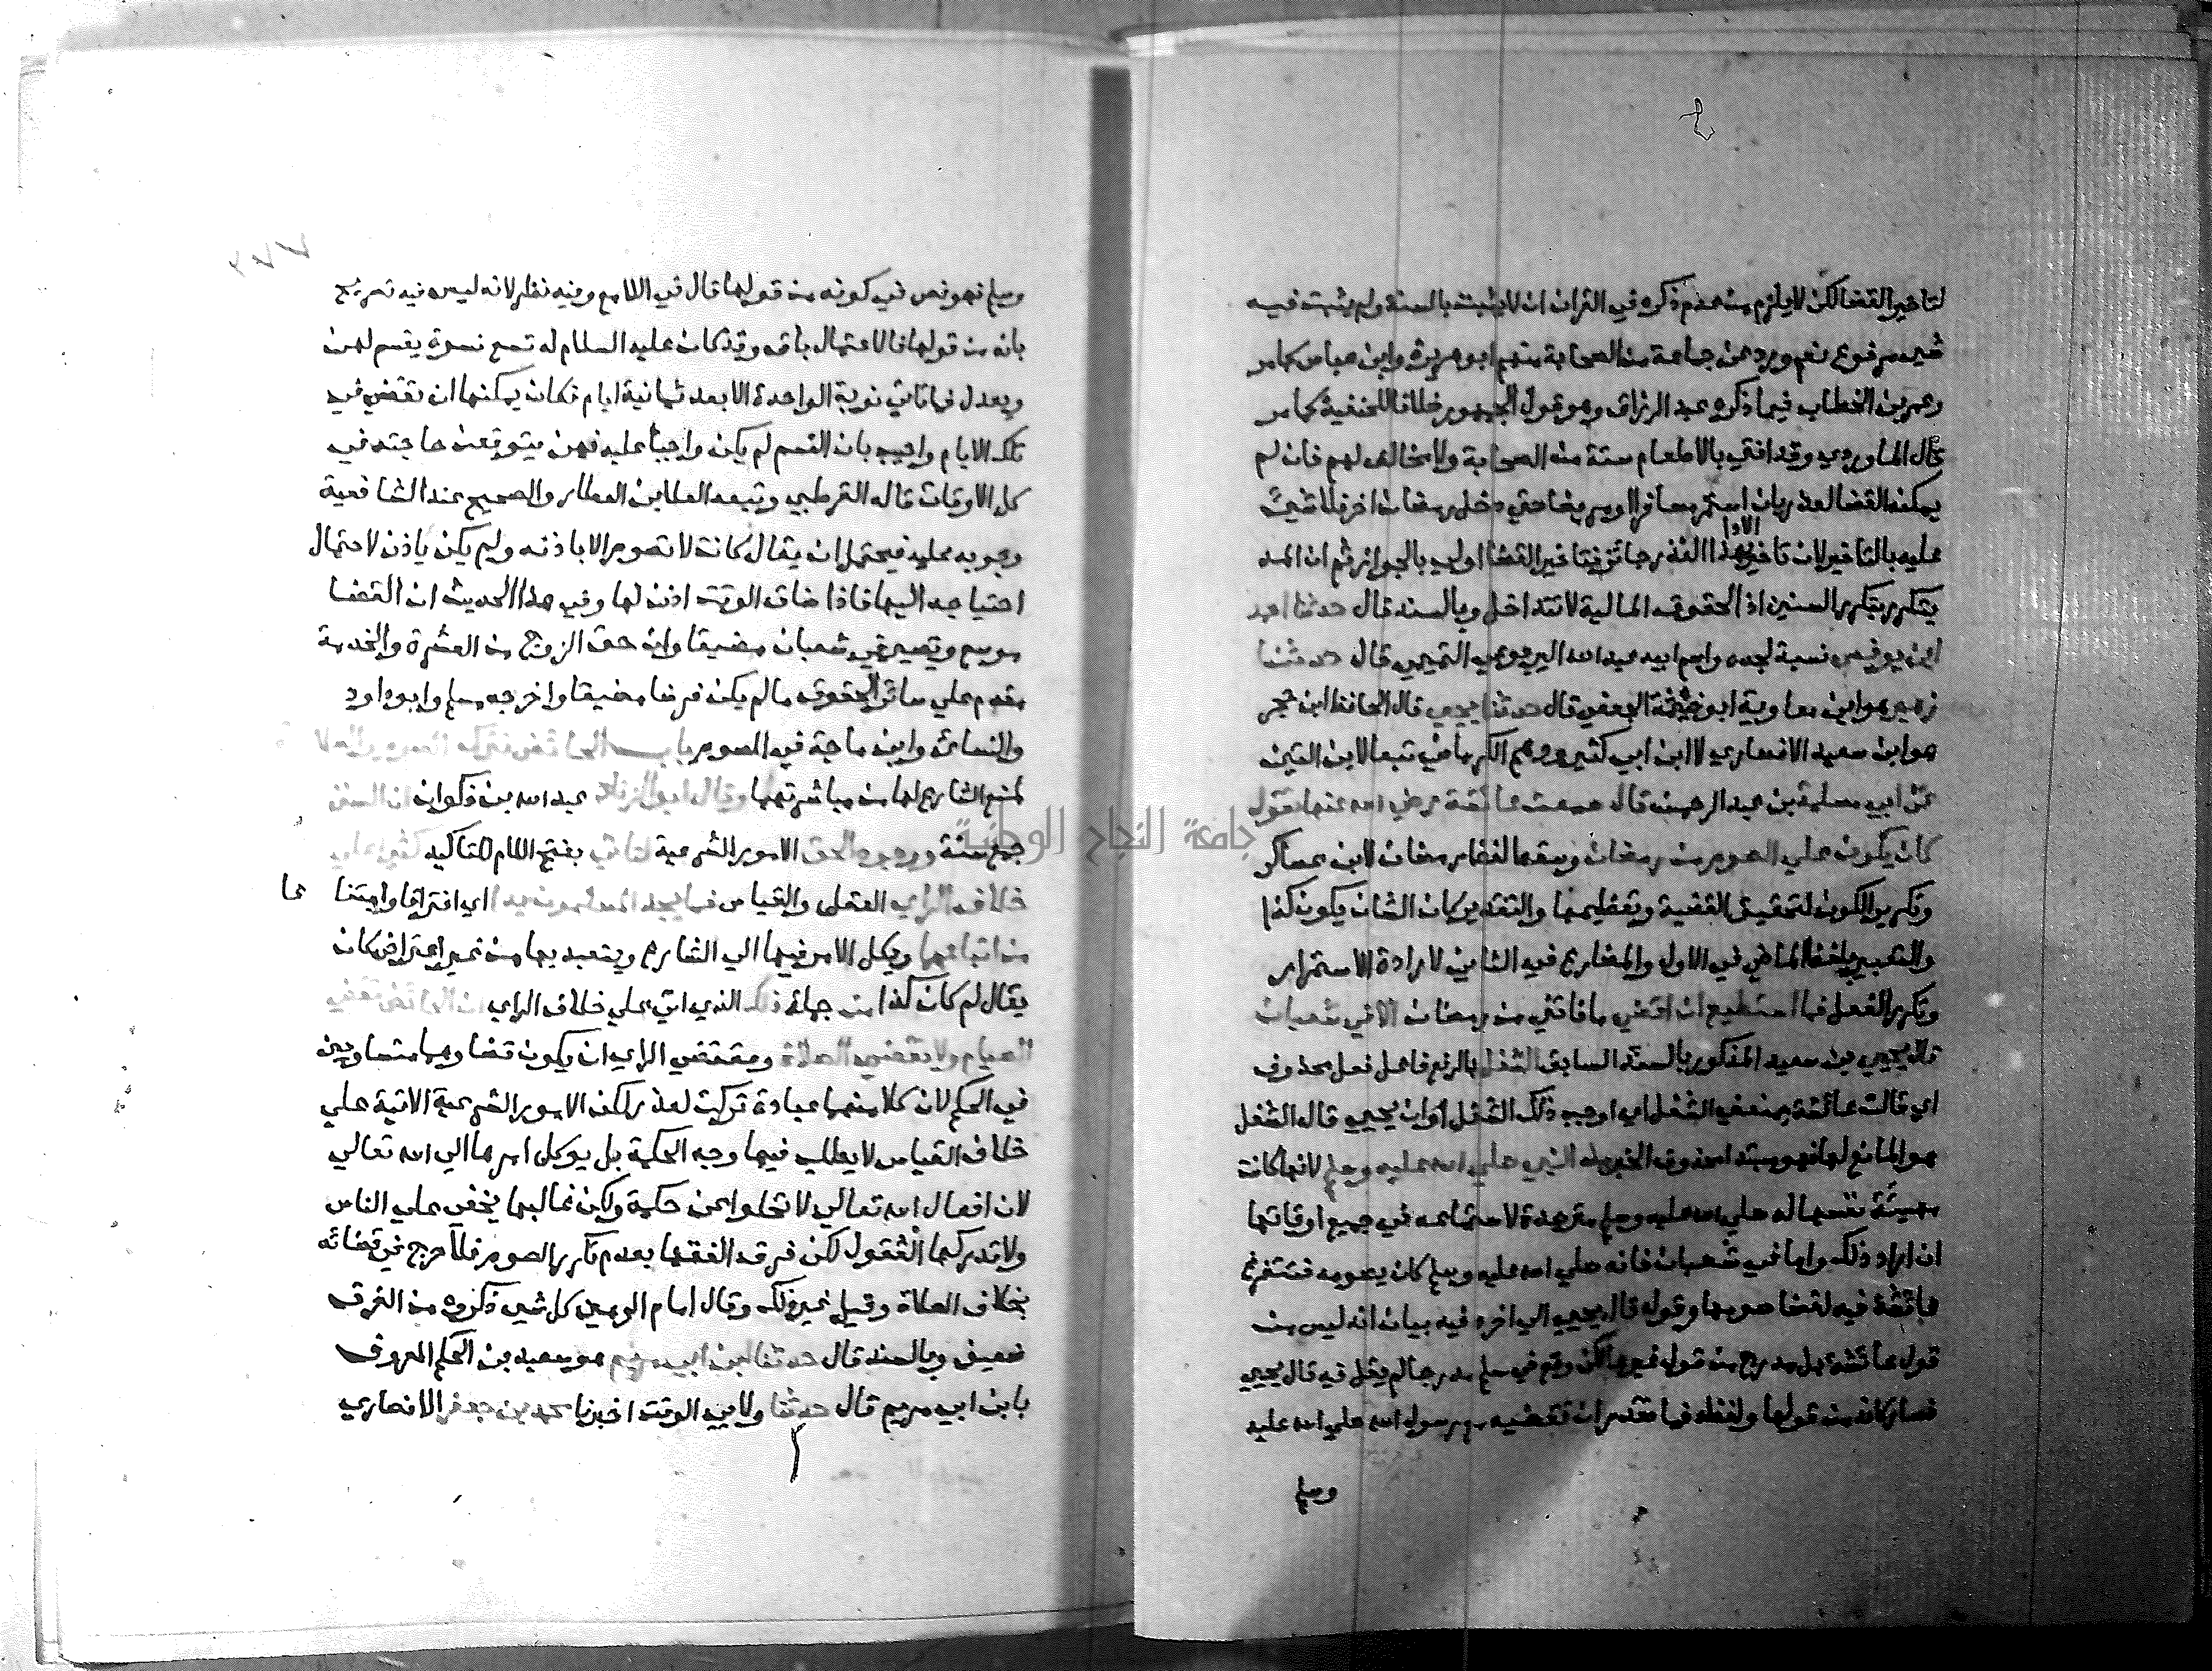 لتاخير القضا لكن لا يلزم من عدم ذكره في القران ان لا يثبت بالسنة ولم يثبت فيه
شي مرفوع نعم ورد عن جماعة من الصحابة منهم ابو هريرة وابن عباس كما مر
وعمر بن الخطاب فيما ذكره عبد الرزاق وهو قول الجمهور خلافا للحنفية كما مر
قال الماوردي وقد افتي بالاطعام ستة من الصحابة ولا مخالف لهم فان لم
يمكنه القضا لعذر بان استمر مسافرا او مريضا حتي دخل رمضان اخر فلا شي
عليه بالتاخير لان تاخير الادا بهذا العذر جائز فتاخير القضا اولي بالجواز ثم ان المد
يتكرر بتكرر السنين اذ الحقوق المالية لا تتداخل وبالسند قال حدثنا احمد
ابن يونس نسبة لجده واسم ابيه عبد الله اليربوعي التميمي قال حدثنا
زهير هو ابن معاوية ابو خيثمة الجعفي قال حدثنا يحيي قال الحافظ ابن حجر
هو ابن سعيد الانصاري لا ابن ابي كثير ووهم الكرماني تبعا لابن التين
عن ابي سلمة بن عبد الرحمن قال سمعت عائشة رضي الله عنها تقول
كان يكون علي الصوم من رمضان وسقط لفظ رمضان لابن عساكر
وتكرير الكون لتحقيق القضية وتعظيمها والتقدير كان الشان يكون كذا
والتعبير بلفظ الماضي في الاول والمضارع في الثاني لارادة الاستمرار
وتكرر الفعل فما استطيع ان اقضي ما فاتني من رمضان الا في شعبان
قال يحيي بن سعيد المذكور بالسند السابق الشغل بالرفع فاعل فعل محذوف
اي قالت عائشة يمنعني الشغل اي اوجب ذلك الشغل او ان يحيي قال الشغل
هو المانع لها فهو مبتدا محذوف الخبر من النبي صلي الله عليه وسلم لانها كانت
مهيئة نفسها له صلي الله عليه وسلم مترصدة لاستمتاعه في جميع اوقاتها
ان اراد ذلك واما في شعبان فانه صلي الله عليه وسلم كان يصومه فتتفرغ
عائشة فيه لقضا صومها وقوله قال يحيي الي اخره فيه بيان انه ليس من
قول عائشة بل مدرج من قول غيرها لكن وقع في مسلم مدرجا لم يقل فيه قال يحيي
فصار كانه من قولها ولفظه فما تقدر ان تقضيه مع رسول الله صلي الله عليه
وسلم
وسلم فهو نص في كونه من قولها قال في اللامع وفيه نظر لانه ليس فيه تصريح
بانه من قولها فالاحتمال باق وقد كان عليه السلام له تسع نسوة يقسم لهن
ويعدل فما تاتي نوبة الواحدة الا بعد ثمانية ايام فكان يمكنها ان تقضي في
تلك الايام واجيب بان القسم لم يكن واجبا عليه فهن يتوقعن حاجته في
كل الاوقات قاله القرطبي وتبعه العلا بن العطار والصحيح عند الشافعية
وجوبه عليه فيحتمل ان يقال كانت لا تصوم الا باذنه ولم يكن ياذن لاحتمال
احتياجه اليها فاذا ضاق الوقت اذن لها وفي هذا الحديث ان القضا
موسع ويصير في شعبان مضيقا وان حق الزوج من العشرة والخدمة
مقدم علي سائر الحقوق ما لم يكن فرضا مضيقا واخرجه مسلم وابو داود
والنسائي وابن ماجة في الصوم باب الحائض تترك الصوم والصلاة
لمنع الشارع لها من مباشرتهما وقال ابو الزناد عبد الله بن ذكوان ان السنن
جمع سنة ووجوه الحق الامور الشرعية لتاتي بفتح اللام للتاكيد كثيرا علي
خلاف الراي العقلي والقياس فما يجد المسلمون بدا اي افتراقا وامتناعا
من اتباعها ويكل الامر فيها الي الشارع ويتعبد بها من غير اعتراض كان
يقال لم كان كذا من جملة ذلك الذي اتي علي خلاف الراي ان الحائض تقضي
الصيام ولا تقضي الصلاة ومقتضي الراي ان يكون قضاوهما متساويين
في الحكم لان كلا منهما عبادة تركت لعذر لكن الامور الشرعية الاتية علي
خلاف القياس لا يطلب فيها وجه الحكمة بل يوكل امرها الي الله تعالي
لان افعال الله تعالي لا تخلوا عن حكمة ولكن غالبها يخفي علي الناس
ولا تدركها العقول لكن فرق الفقها بعدم تكرر الصوم فلا حرج في قضائه
بخلاف الصلاة وقيل غير ذلك وقال امام الحرمين كل شي ذكروه من الفرق
ضعيف وبالسند قال حدثنا ابن ابي مريم هو سعيد بن الحكم المعروف
بابن ابي مريم قال حدثنا ولابي الوقت اخبرنا محمد بن جعفر الانصاري
جامعة النجاح الوطنية